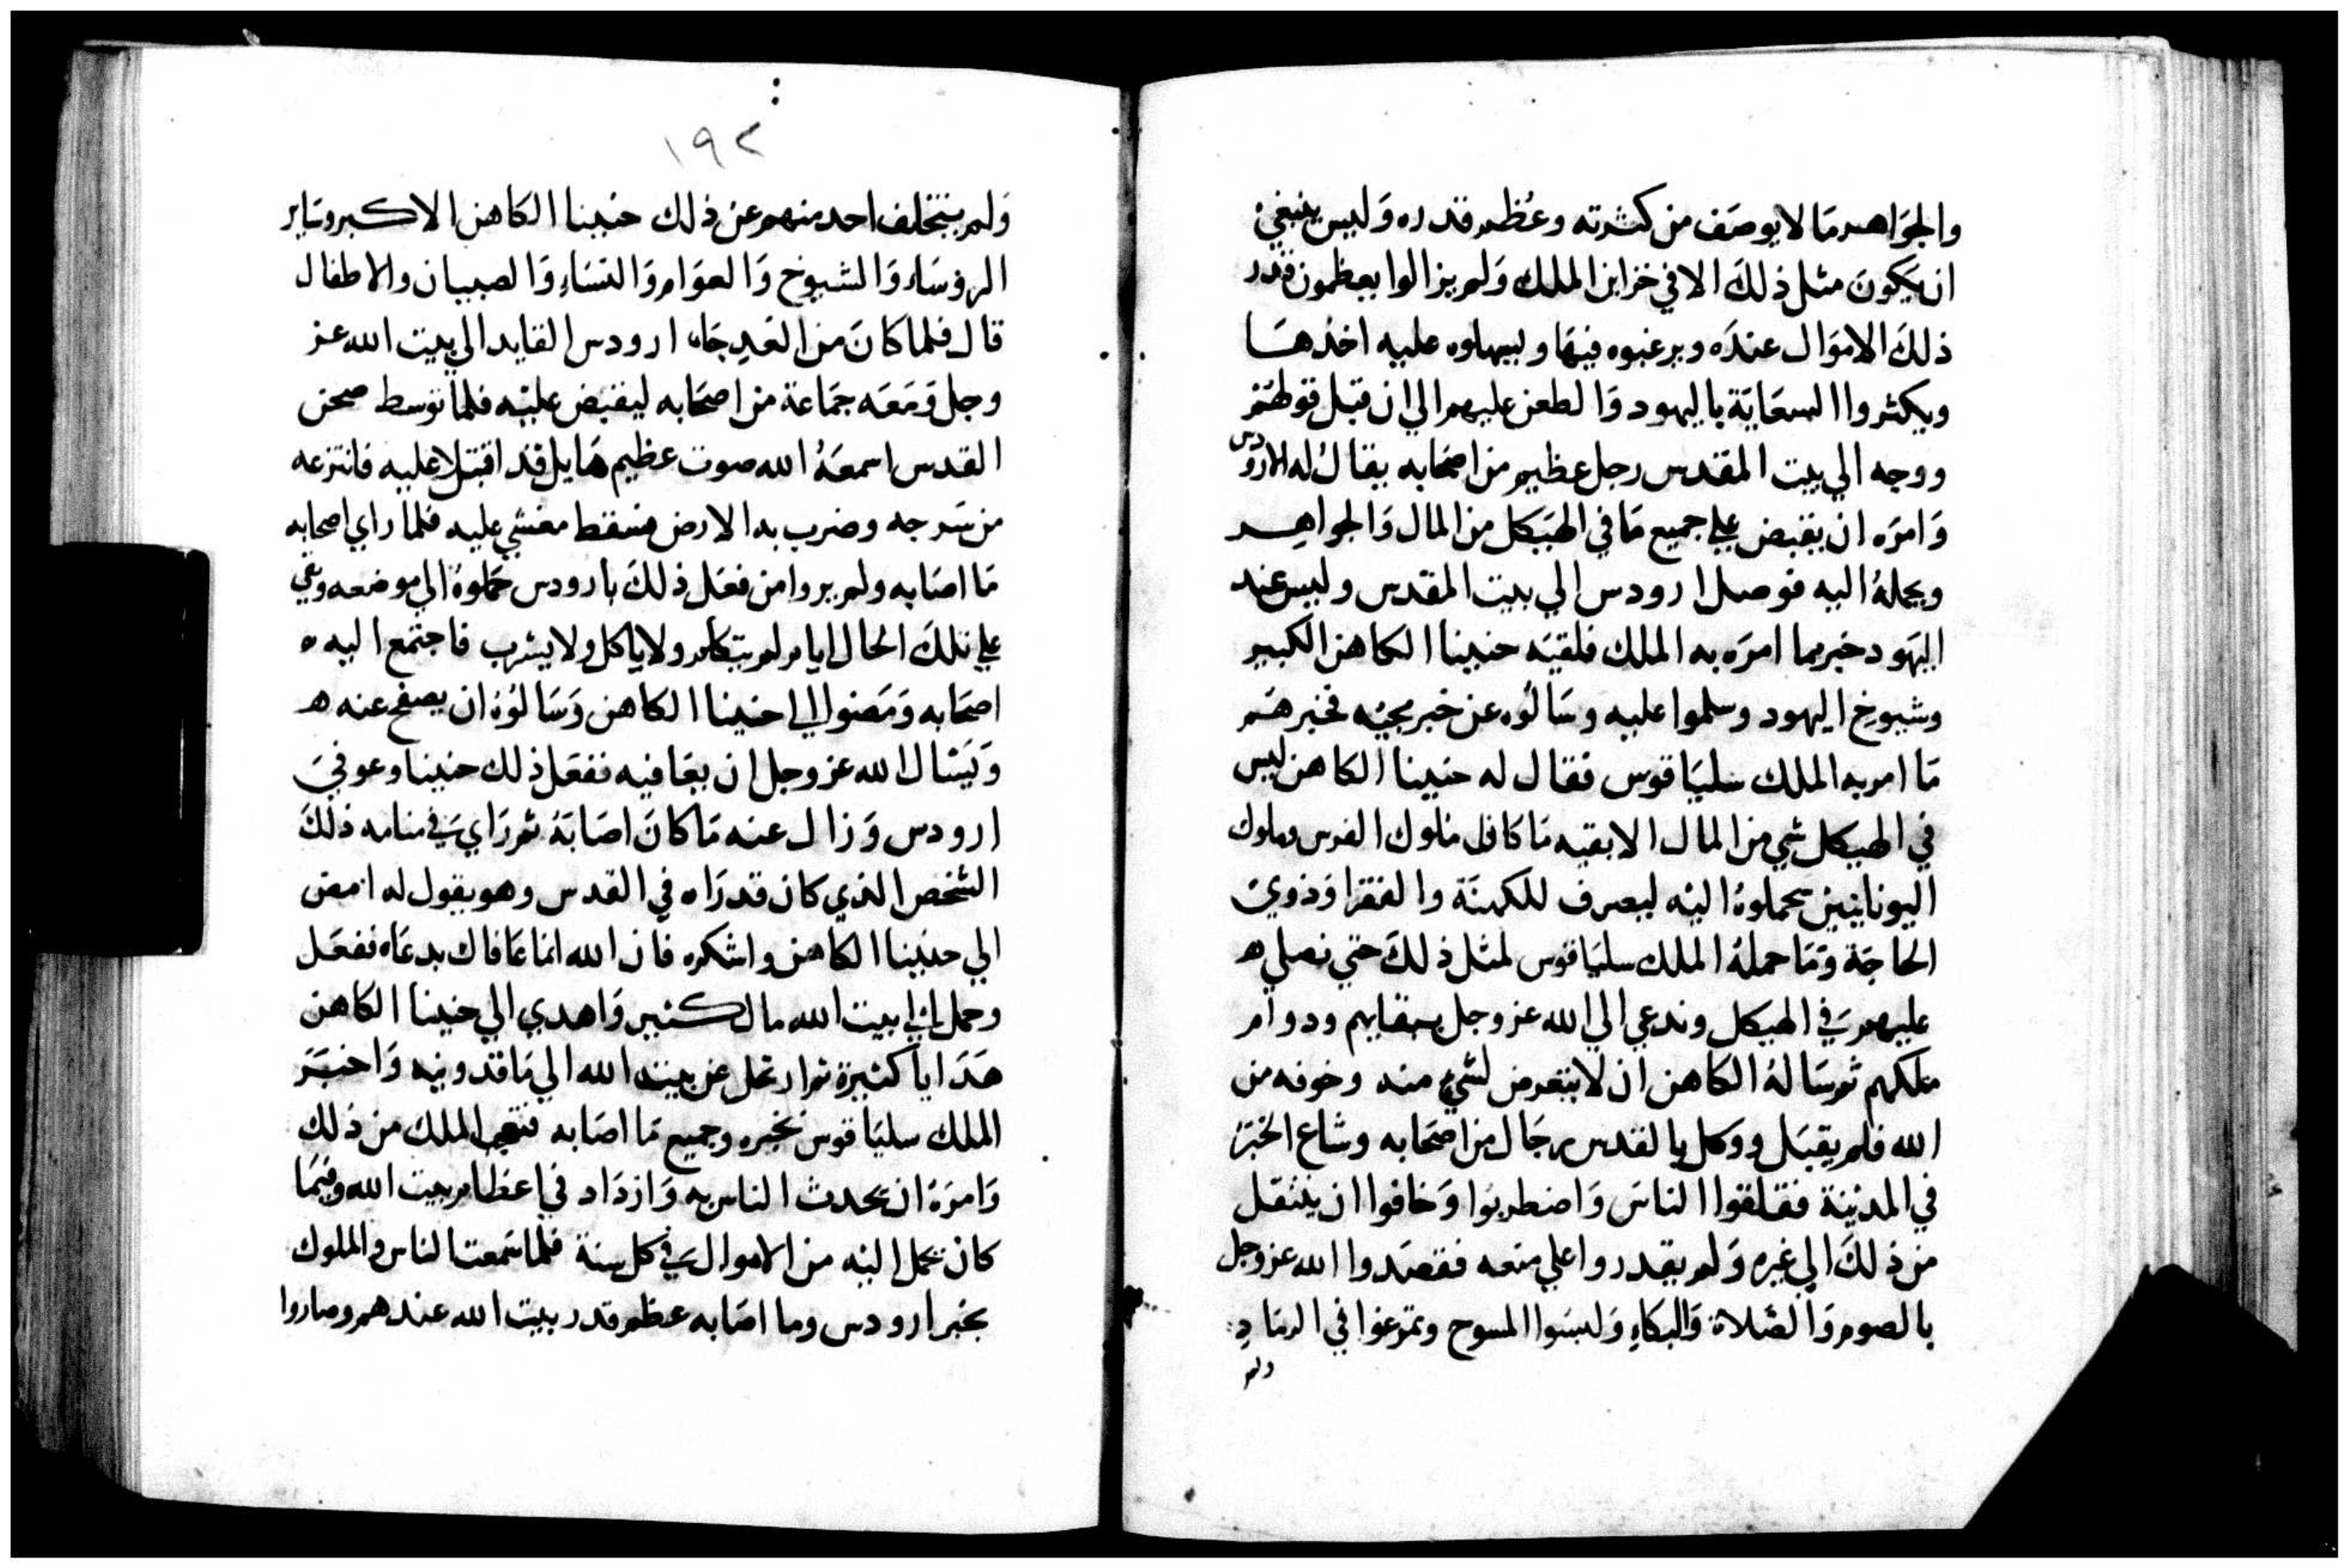 والجَوَاهر مَا لا يوصَف من كثرته وعُظم قدره وَليس ينبغي
ان يَكونَ مثل ذلكَ الا في خزاين الملك وَلم يزالوا يعظمون قدر
ذلكَ الاموَال عندَه ويرغبوه فيهَا ويسهلوه عليه اخذهَا
ويكثروا السعَايَة باليهود وَالطعن عليهم الي ان قبَل قولهُم
ووجه الي بيت المقدس رجل عظيم من اصحَابه يقالُ له الاروُدس
وَامرَه ان يقبض علي جميع مَا في الهَيَكل من المال وَالجواهِر
ويحملهُ اليه فوصل ارودس الي بيت المقدس وليس عند
اليَهود خبر مما امرَه به الملك فلقيَه حنينا الكاهن الكبير
وشيوخ اليهود وسلموا عليه وسَالوُه عن خبر مجيُه فخبرهَم
مَا امر به الملك سليَاقوس فقال له حنينا الكاهن ليس
في الهيكل شي من المال الا بقيه مَا كان ملوك الفرس وملوك
اليونانيين يحملوهُ اليْه ليصرف للكهنَة والفقرَا وَذوي
الحاجَة وَمَا حملهُ الملك سليَاقوس لمثل ذلكَ حتي نصلي ه
عليهم في الهيكل وندعي الي الله عز وجل ببقايهم ودوام
ملكهم ثم سَالهُ الكاهن ان لا يتعرض لشيء منه وخوفه من
الله فلم يقبَل ووكل بالقدس رجَال من اصحَابه وشاع الخبَر
في المدينة فقلقوا الناسَ وَاضطربُوا وَخافوا ان ينتقل
من ذلكَ الي غيره وَلم يقدروا علي منعه فقصَدوا الله عز وجل
بالصوم وَالصَلاة وَالبكاءِ وَلبسَوا المسوح وتمرغوا في الرمَادِ
ولم
١٩٢
وَلم يتخلف احد منهم عن ذلك حنينا الكَاهن الاكبر وسَاير
الروسَاء وَالشيوخ وَالعوَام وَالنسَاءِ وَالصبيان والاطفال
قال فلما كانَ من الغدِ جَاء ارودس القايد الي بيت الله عز
وجل وَمَعَه جمَاعة من اصحَابه ليقبَض عليْه فلما توسط صحن
القدس اسمعَهُ الله صوت عظيم هَايل قد اقبَل عليه فانتزعه
من سَرجه وضرب به الارض فسَقط مغشي عليه فلما راي اصحابه
مَا اصَابه ولم يروا من فعَل ذلكَ بارودس حملوهُ الي موضعه وبقي
علي تلكَ الحال ايام لم يتكلم ولا ياكل ولا يشرب فاجتمع اليه ه
اصحَابه وَمَضوا الي احنينا الكاهن وَسَالوُهُ ان يصفح عنه ه
وَيَسَال الله عز وجل ان يعَافيه ففعَل ذلك حنينا وعوفيَ
ارودس وَزال عنه مَا كانَ اصَابَهُ ثم رَاي في منامه ذلكَ
الشخص الذي كان قد رَاه في القدس وهو يقول له امض
الي حنينا الكاهن واشكره فان الله انما عَافاك بدعَاه ففعَل
وحمل الي بيت الله مال كثير وَاهدي الي حنينا الكاهن
هَدَايا كثيرة ثم ارتحل عن بيت الله الي مَاقدونيه وَاخبَرَ
الملك سليَاقوس بخبره وجميع مَا اصَابه فتعجب الملك من ذلك
وَامرَهُ ان يحدث الناس به وَازدَاد في اعظام بيت الله وفيمَا
كان يحمل اليْه من الاموال في كل سنة فلما سَمعت الناس والملوك
بخبر ارودس وما اصَابه عظم قدر بيت الله عندهم وصاروا